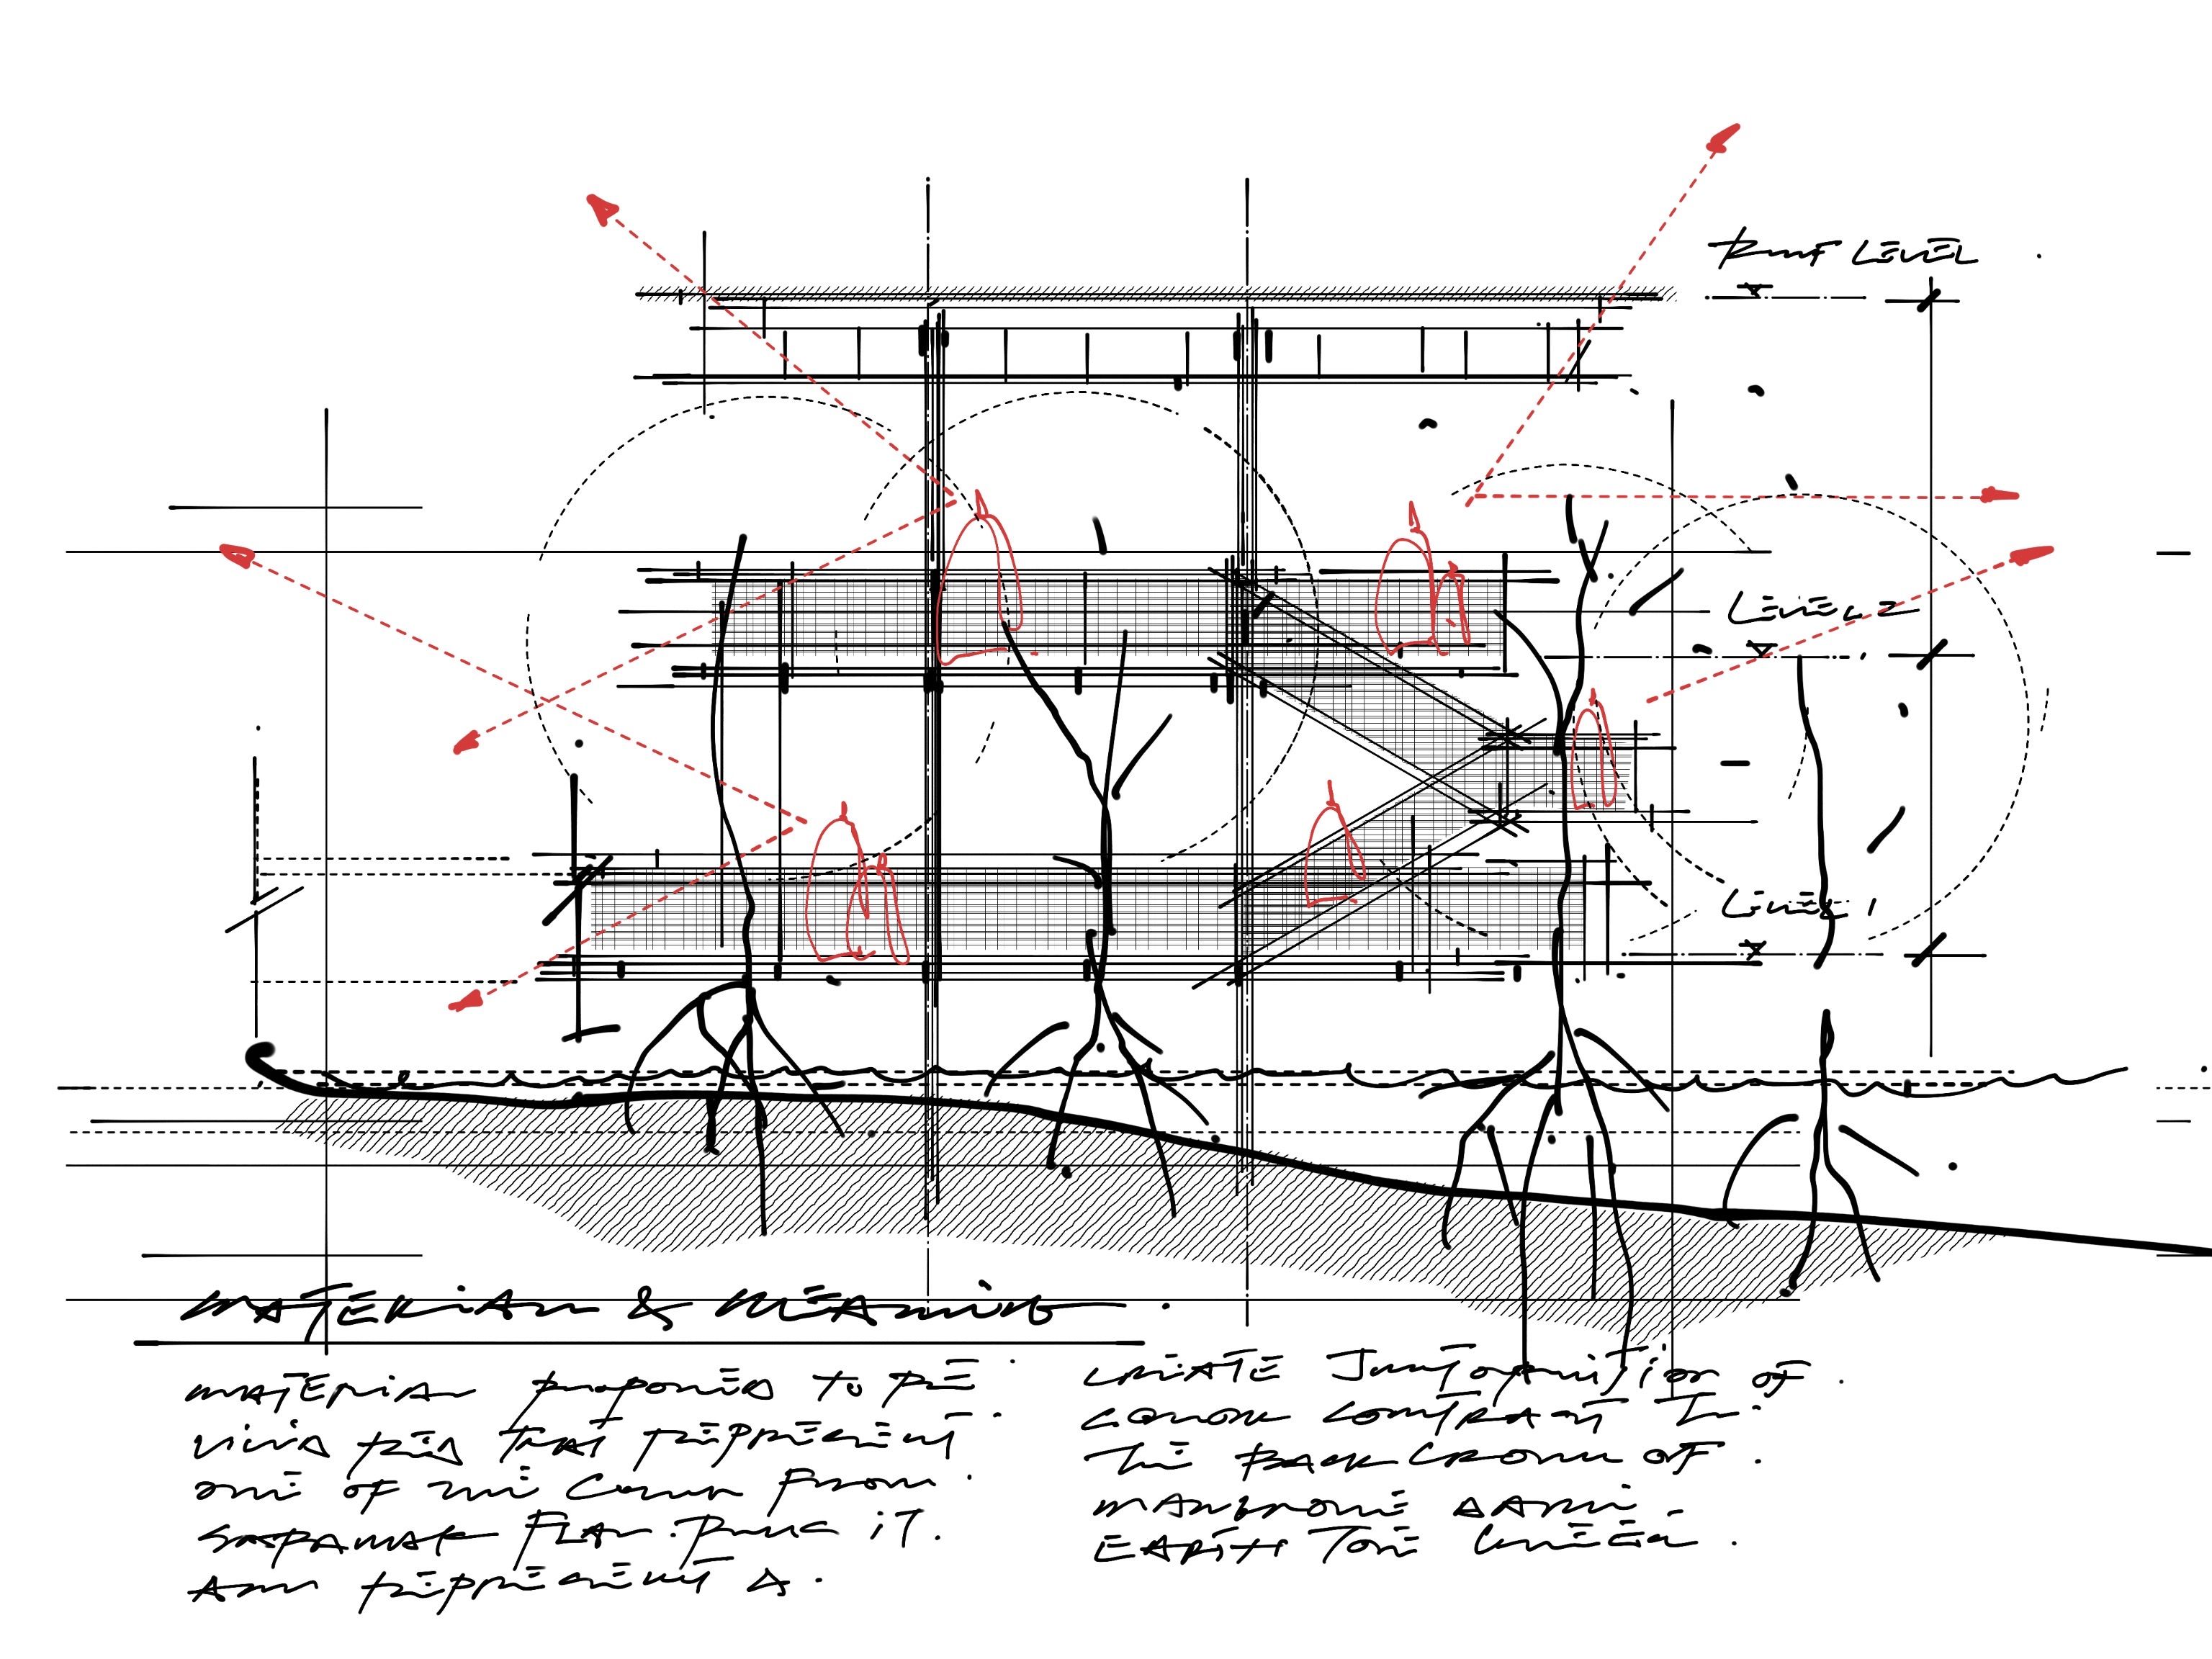 ROOF LEVEL
LEVEL 2
LEVEL 1
MATERIAL & MEANING
MATERIAL PROPOSED TO BE
VIVID RED THAT REPRESENT
ONE OF THE COLOUR FROM
FLAG. IT
AND REPRESENT A
CREATE JUXTAPOSITION OF
COLOUR CONTRAST IN
THE BACKGROUND OF
MANGROVE DARK
EARTH TONE GREEN